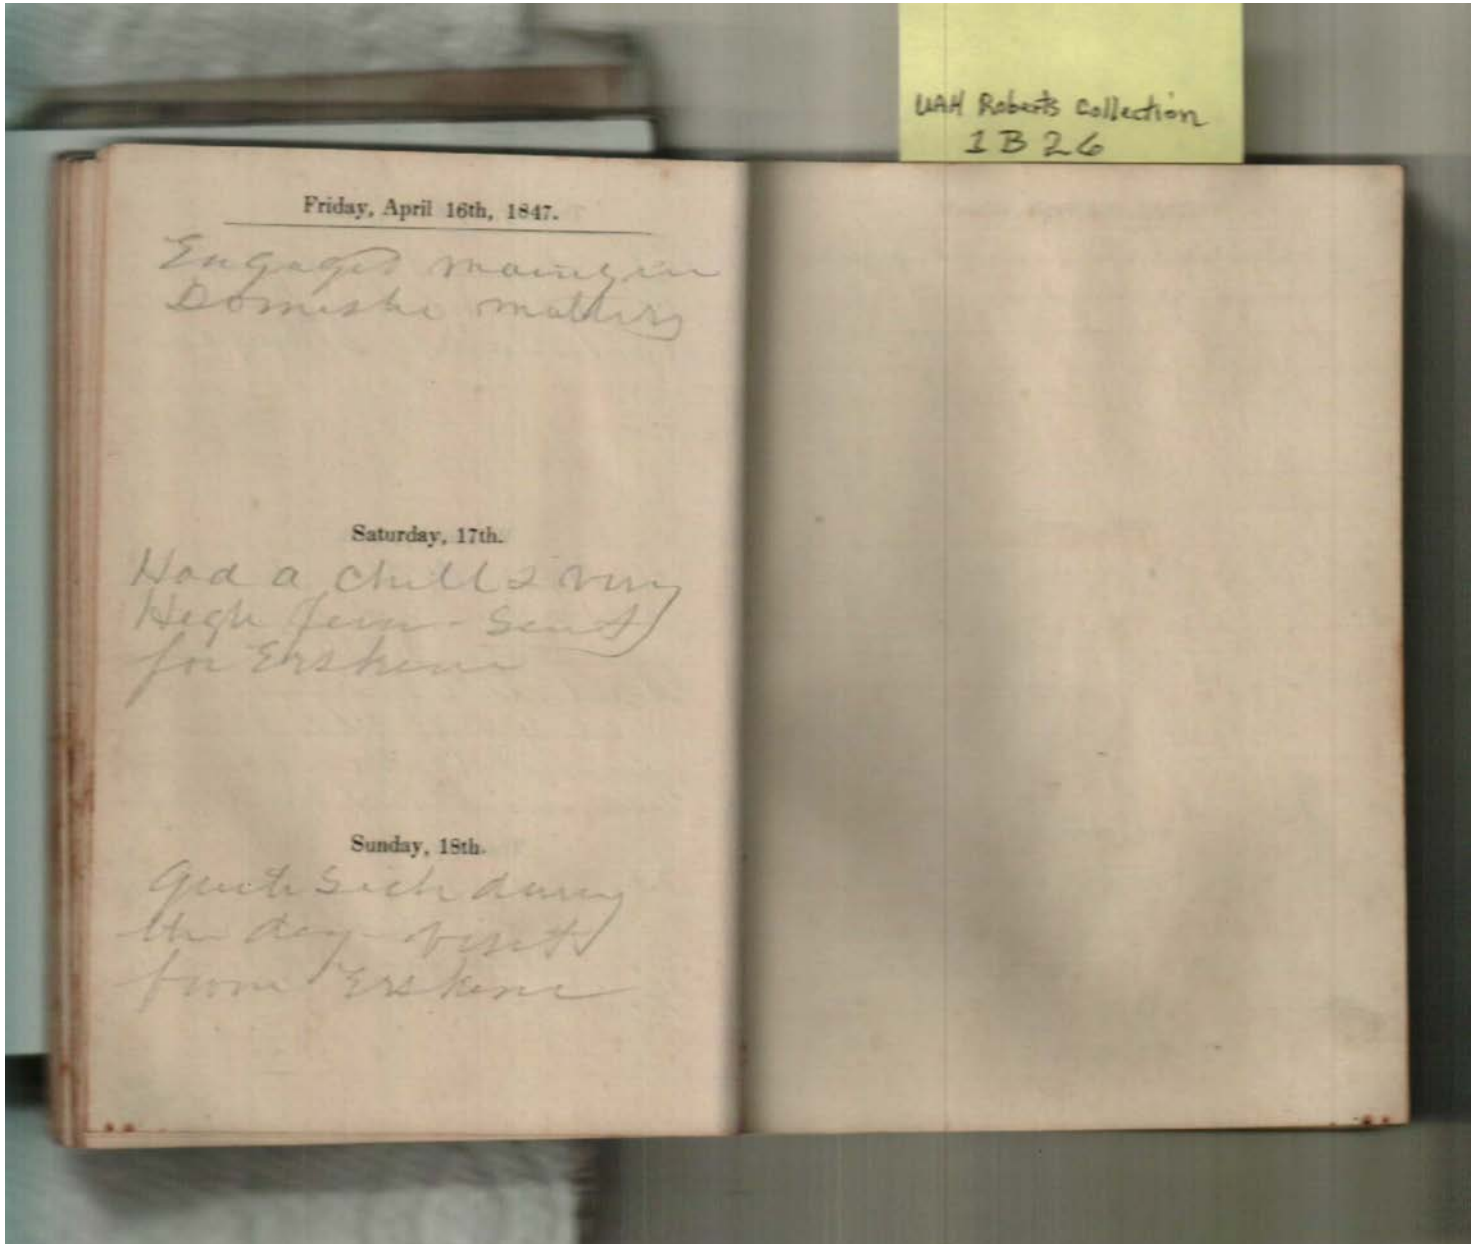 UAH Roberts Collection
1B26
Friday, April 16th, 1847.
Engaged mainly in
Domestic matters
Saturday, 17th.
Had a chill & very
High fever - Sent
for Erskine
Sunday, 18th.
Quite Sick during
the day - visit
from Erskine